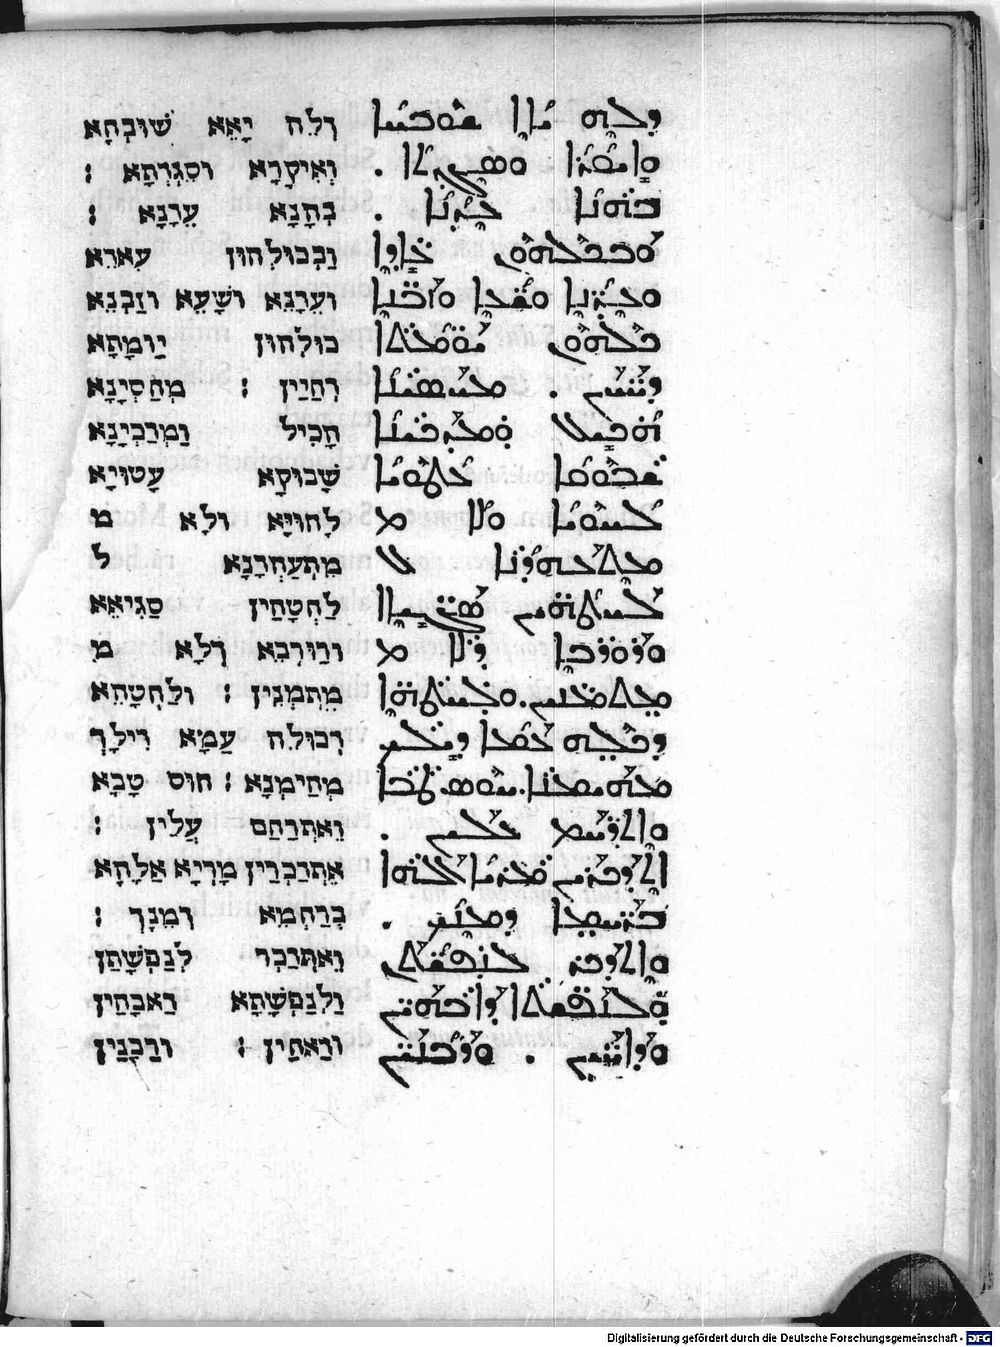 ܕܠܗ ܝܐܐ ܫܘܒܚܐ
ܘܐܝܩܪܐ ܘܣܓܕܬܐ .
ܒܗܢܐ ܥܕܢܐ .
ܘܒܟܠܗܘܢ ܥܐܕܐ
ܘܥܕܢܐ ܘܫܥܐ ܘܙܒܢܐ
ܟܠܗܘܢ ܝܘܡܬܐ
ܕܚܝܝܢ . ܡܚܣܝܢܐ
ܗܟܝܠ ܘܡܕܟܝܢܐ
ܫܒܘܩܐ ܥܛܘܝܐ
ܠܚܘܝܐ ܘܠܐ ܡ
ܡܬܥܗܕܢܐ ܠ
ܠܚܛܗܝܢ ܣܓܝܐܐ
ܘܪܘܪܒܐ ܕܠܐ ܡ
ܡܬܡܢܝܢ . ܘܠܚܛܗܐ
ܕܟܠܗ ܥܡܐ ܕܝܠܟ
ܡܗܝܡܢܐ . ܚܘܣ ܛܒܐ
ܘܐܬܪܚܡ ܥܠܝܢ .
ܐܬܕܟܪܝܢ ܡܪܝܐ ܐܠܗܐ
ܒܪܚܡܐ ܕܡܢܟ .
ܘܐܬܕܟܪ ܠܢܦܫܬܢ
ܘܠܢܦܫܬܐ ܕܐܒܗܝܢ
ܘܕܐܚܝܢ . ܘܪܒܢܝܢ
דְלֵה יָאֵא שׁוּבְחָא
וְאִיקָרָא וסִגְדְתָא :
בְּהָנָא עֵדָנָא :
וַבְכוּלְהוּן עִאדֵא
ועֵדָנֵא ושָׁעֵא וזַבְנֵא
כּוּלְהוּן יַומָתָא
דְחַיַין : מְחַסְיָנָא
הָכִיל וַמְדַכְיָנָא
שָׁבוּקָא עָטוּיָא
לְחוּיָא ולָא מ
מִתְעַהְדָנָא ל
לַחְטָהַין סַגִיאֵא
ורַוּרְבֵא דְלָא מ
מִתְמְנֵין : ולַחְטָהֵא
דְכוּלֵה עַמָא דִילָךְ
מְהַימְנָא : חוּס טָבָא
וֵאתְרַחַם עֲלַין :
אֵתְדַכְרַין מָרְיָא אַלָהָא
בְּרַחְמֵא דְמֵנָךְ :
וֵאתְדַכְר לְנַפְשָׁתַן
וַלְנַפְשָׁתָא דַאבָהַין
ודַאחַין : ורַבָּנַין
Digitalisierung gefördert durch die Deutsche Forschungsgemeinschaft - DFG